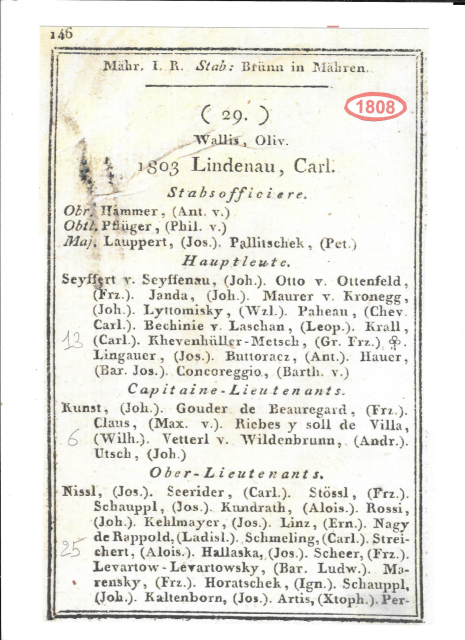 146
Mähr. I. R. Stab: Brünn in Mähren.
1808
( 29. )
Wallis, Oliv.
1803 Lindenau, Carl.
Stabsofficiere.
Obr. Hammer, (Ant. v.)
Obtl. Pflüger, (Phil. v.)
Maj. Lauppert, (Jos.). Pallitschek, (Pet.)
Hauptleute.
Seyffert v. Seyffenau, (Joh.). Otto v. Ottenfeld,
(Frz.). Janda, (Joh.). Maurer v. Kronegg,
(Joh.). Lyttomisky, (Wzl.). Paheau, (Chev.
Carl.). Bechinie v. Laschan, (Leop.). Krall,
13 (Carl.). Khevenhüller-Metsch, (Gr. Frz.)
Lingauer, (Jos.). Buttoracz, (Ant.). Hauer,
(Bar. Jos.). Concoreggio, (Barth. v.)
Capitaine-Lieutenants.
Kunst, (Joh.). Gouder de Beauregard, (Frz.).
Claus, (Max. v.). Riches y soll de Villa,
6 (Wilh.). Vetterl v. Wildenbrunn, (Andr.).
Utsch, (Joh.)
Ober-Lieutenants.
Nissl, (Jos.). Seerider, (Carl.). Stössl, (Frz.).
Schauppl, (Jos.). Kundrath, (Alois.). Rossi,
(Joh.). Kehlmayer, (Jos.). Linz, (Ern.). Nagy
de Rappold, (Ladisl.). Schmeling, (Carl.). Strei-
25 chert, (Alois.). Hallaska, (Jos.). Scheer, (Frz.).
Levartow-Levartowsky, (Bar. Ludw.). Ma-
rensky, (Frz.). Horatschek, (Ign.). Schauppl,
(Joh.). Kaltenborn, (Jos.). Artis, (Xtoph.). Per-